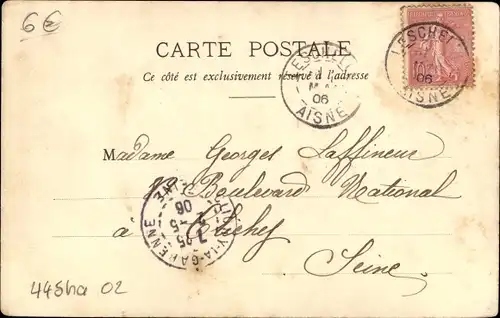 6€
CARTE POSTALE
Ce côté est exclusivement réservé à l'adresse
LESCHELL
06
AISNE
LESCHELL
MAI
06
AISNE
Madame Georges Laffineur
Boulevard National
à Clichy
Seine
CLICHY-LA-GARENNE
7 25
5
06
445ha 02